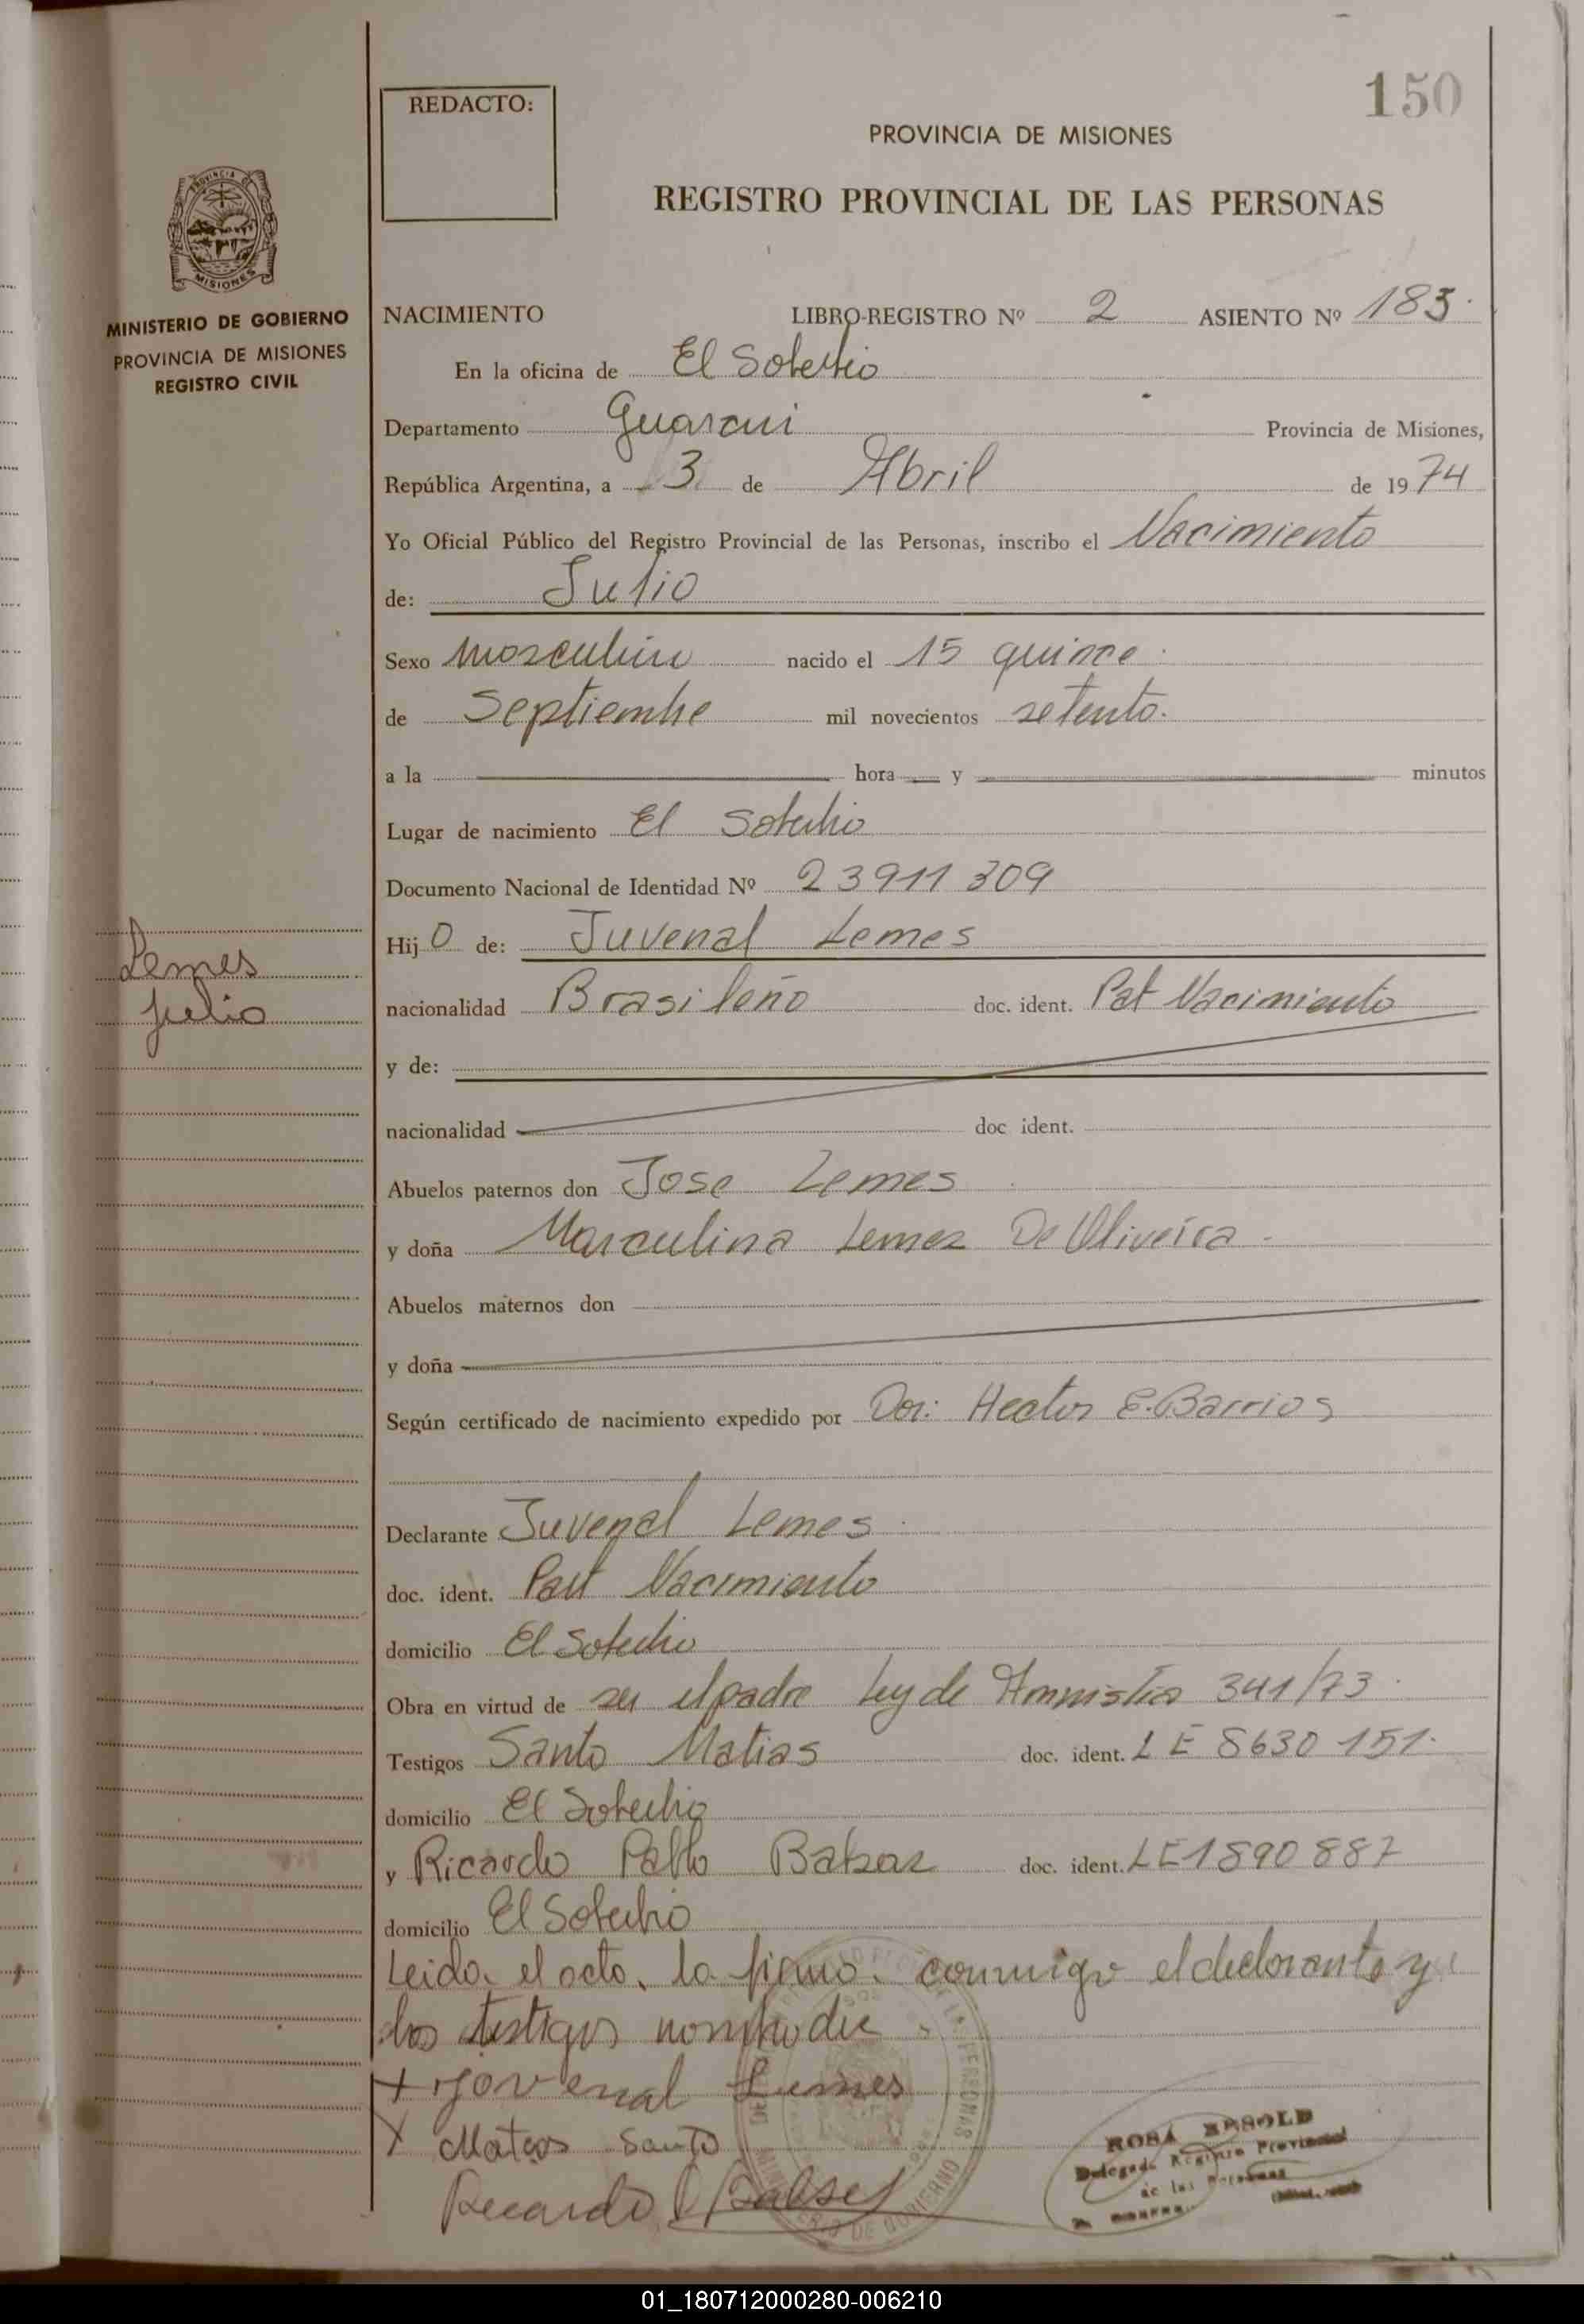 150
REDACTO:
PROVINCIA DE MISIONES
REGISTRO PROVINCIAL DE LAS PERSONAS
PROVINCIA DE
MISIONES
MINISTERIO DE GOBIERNO
PROVINCIA DE MISIONES
REGISTRO CIVIL
NACIMIENTO LIBRO-REGISTRO Nº 2 ASIENTO Nº 183.
En la oficina de El Soberbio
Departamento Guarani Provincia de Misiones,
República Argentina, a 3 de Abril de 1974
Yo Oficial Público del Registro Provincial de las Personas, inscribo el Nacimiento
de: Julio
Sexo Masculino nacido el 15 quince
de Septiembre mil novecientos setenta.
a la hora y minutos
Lugar de nacimiento El Soberbio
Documento Nacional de Identidad Nº 23911309
Hijo de: Juvenal Lemes
Lemes
Julio
nacionalidad Brasileño doc. ident. Pat Nacimiento
y de:
nacionalidad doc ident.
Abuelos paternos don Jose Lemes
y doña Marculina Lemez De Oliveira
Abuelos maternos don
y doña
Según certificado de nacimiento expedido por Dor: Hector E. Barrios
Declarante Juvenal Lemes
doc. ident. Part Nacimiento
domicilio El Soberbio
Obra en virtud de ser el padre Ley de Amnistia 341/73
Testigos Santo Matias doc. ident. L E 8630 151.
domicilio El Soberbio
y Ricardo Pablo doc. ident. LE1890887
domicilio El Soberbio
Leida el acta, la firma conmigo el declarante y
los testigos
+ Jovenal Lemes
X Mateos Santo
Ricardo
ROSA
Delegada Registro Provincial
de las Personas
MINISTERIO DE GOBIERNO
01_180712000280-006210